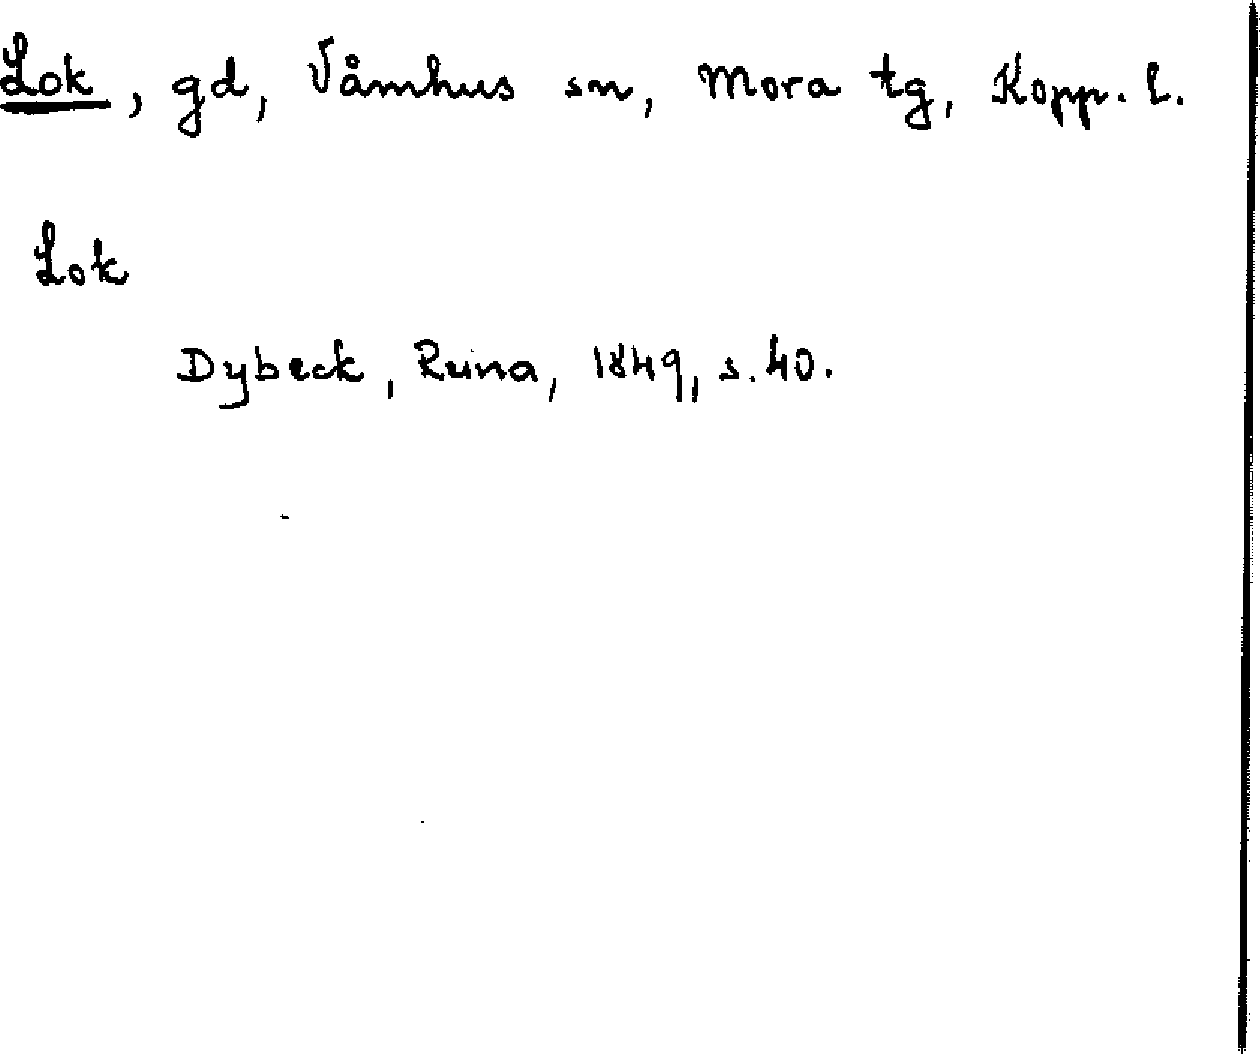 Lok, gd, Våmhus sn, Mora tg, Kopp. l.
Lok
Dybeck, Runa, 1849, s. 40.